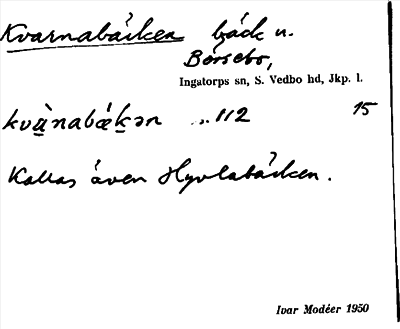 Kvarnabäcken bäck n.
Börsebo,
Ingatorps sn, S. Vedbo hd, Jkp. l.
kvànabǽkən „ 112 15
Kallas även Hyvlabäcken.
Ivar Modéer 1950